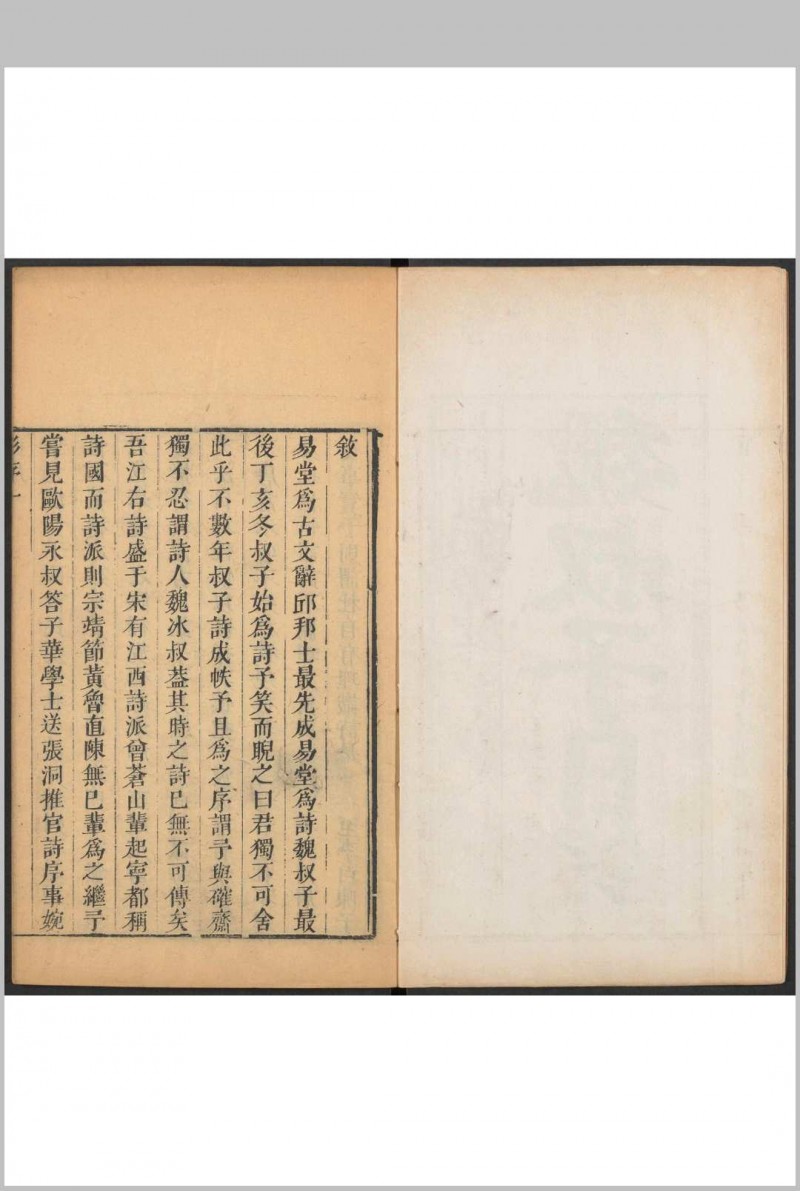 敘
易堂爲古文辭邱邦士最先成易堂爲詩魏叔子最
後丁亥冬叔子始爲詩予笑而睨之曰君獨不可舍
此乎不數年叔子詩成帙予且爲之序謂予與確齋
獨不忍謂詩人魏冰叔葢其時之詩已無不可傳矣
吾江右詩盛于宋有江西詩派曾蒼山輩起寧都稱
詩國而詩派則宗靖節黃魯直陳無已輩爲之繼予
嘗見歐陽永叔答子華學士送張洞推官詩序事婉